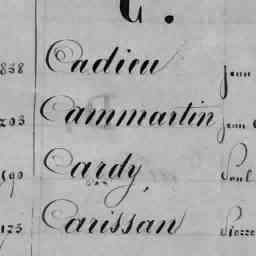 C.
838 Cadieu Jean
203 Cammartin Jean
590 Cardy Paul
175 Carissan Pierre